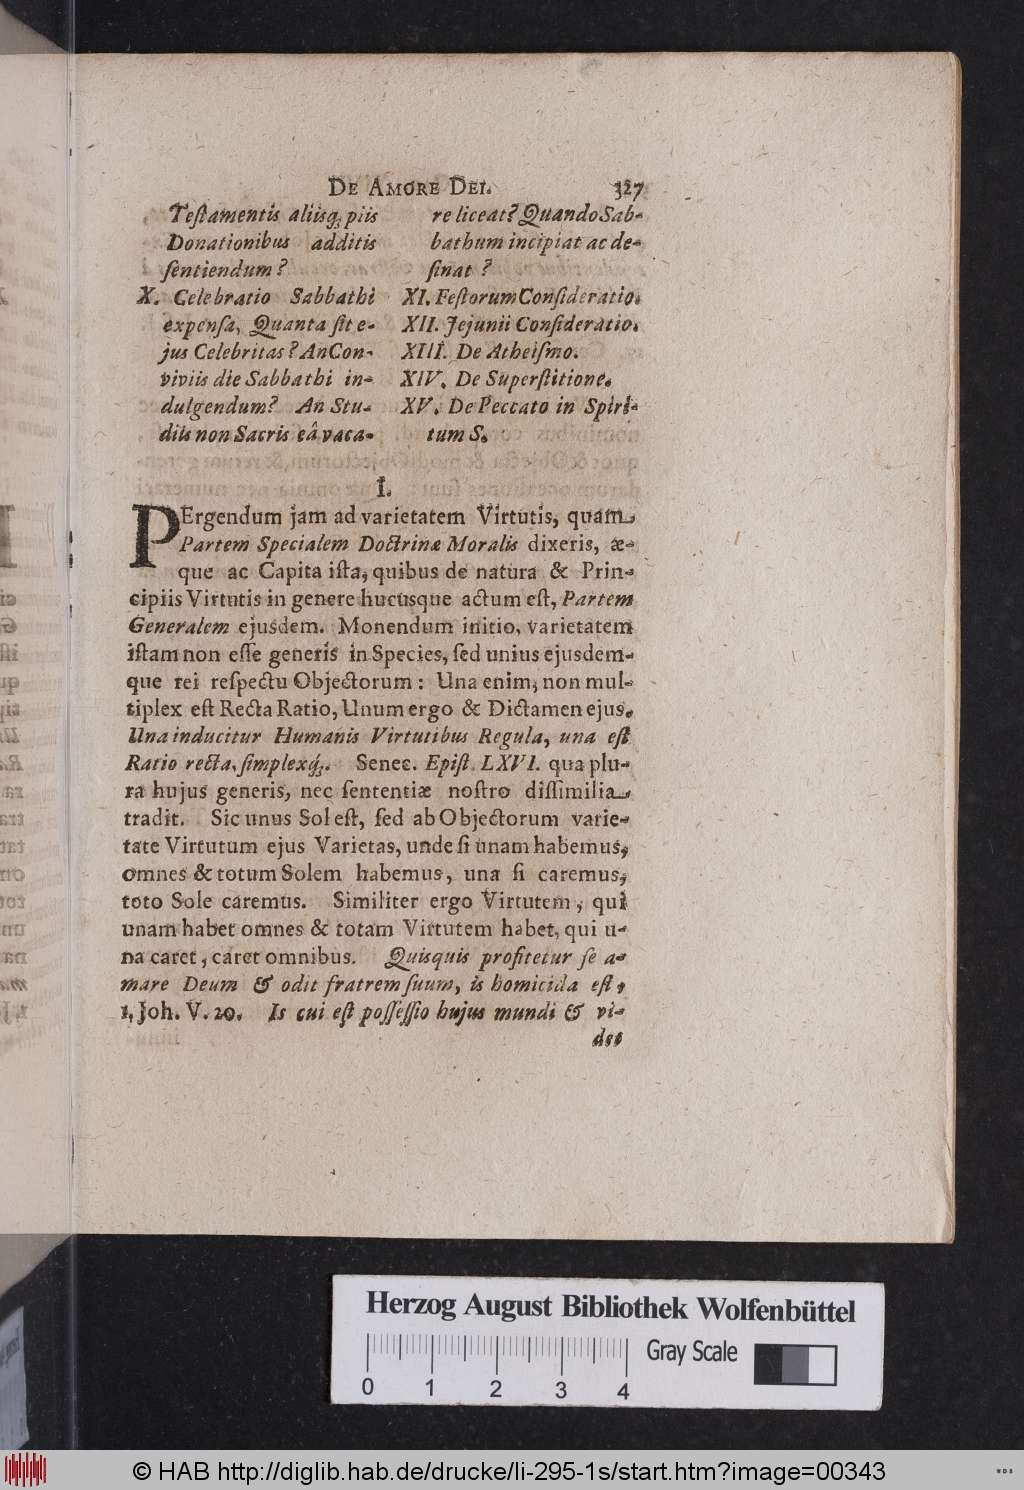 DE AMORE DEI. 327
Teſtamentis aliisq; piis
Donationibus additis
ſentiendum?
X. Celebratio Sabbathi
expenſa, Quanta ſit e-
jus Celebritas? An Con-
viviis die Sabbathi in-
dulgendum? An Stu-
diis non Sacris eâ vaca-
re liceat? Quando Sab-
bathum incipiat ac de-
ſinat?
XI. Feſtorum Conſideratio.
XII. Jejunii Conſideratio.
XIII. De Atheiſmo.
XIV. De Superſtitione.
XV. De Peccato in Spiri-
tum S.
I.
PErgendum jam ad varietatem Virtutis, quam
Partem Specialem Doctrinæ Moralis dixeris, æ-
que ac Capita iſta, quibus de natura & Prin-
cipiis Virtutis in genere hucusque actum eſt, Partem
Generalem ejusdem. Monendum initio, varietatem
iſtam non eſſe generis in Species, ſed unius ejusdem-
que rei reſpectu Objectorum: Una enim, non mul-
tiplex eſt Recta Ratio, Unum ergo & Dictamen ejus.
Una inducitur Humanis Virtutibus Regula, una eſt
Ratio recta, ſimplexq;. Senec. Epiſt. LXVI. qua plu-
ra hujus generis, nec ſententiæ noſtro diſſimilia
tradit. Sic unus Sol eſt, ſed ab Objectorum varie-
tate Virtutum ejus Varietas, unde ſi unam habemus,
omnes & totum Solem habemus, una ſi caremus,
toto Sole caremus. Similiter ergo Virtutem, qui
unam habet omnes & totam Virtutem habet, qui u-
na caret, caret omnibus. Quisquis profitetur ſe a-
mare Deum & odit fratrem ſuum, is homicida eſt,
1, Joh. V. 20. Is cui eſt poſſeſſio hujus mundi & vi-
det
Herzog August Bibliothek Wolfenbüttel
Gray Scale
0 1 2 3 4
© HAB http://diglib.hab.de/drucke/li-295-1s/start.htm?image=00343